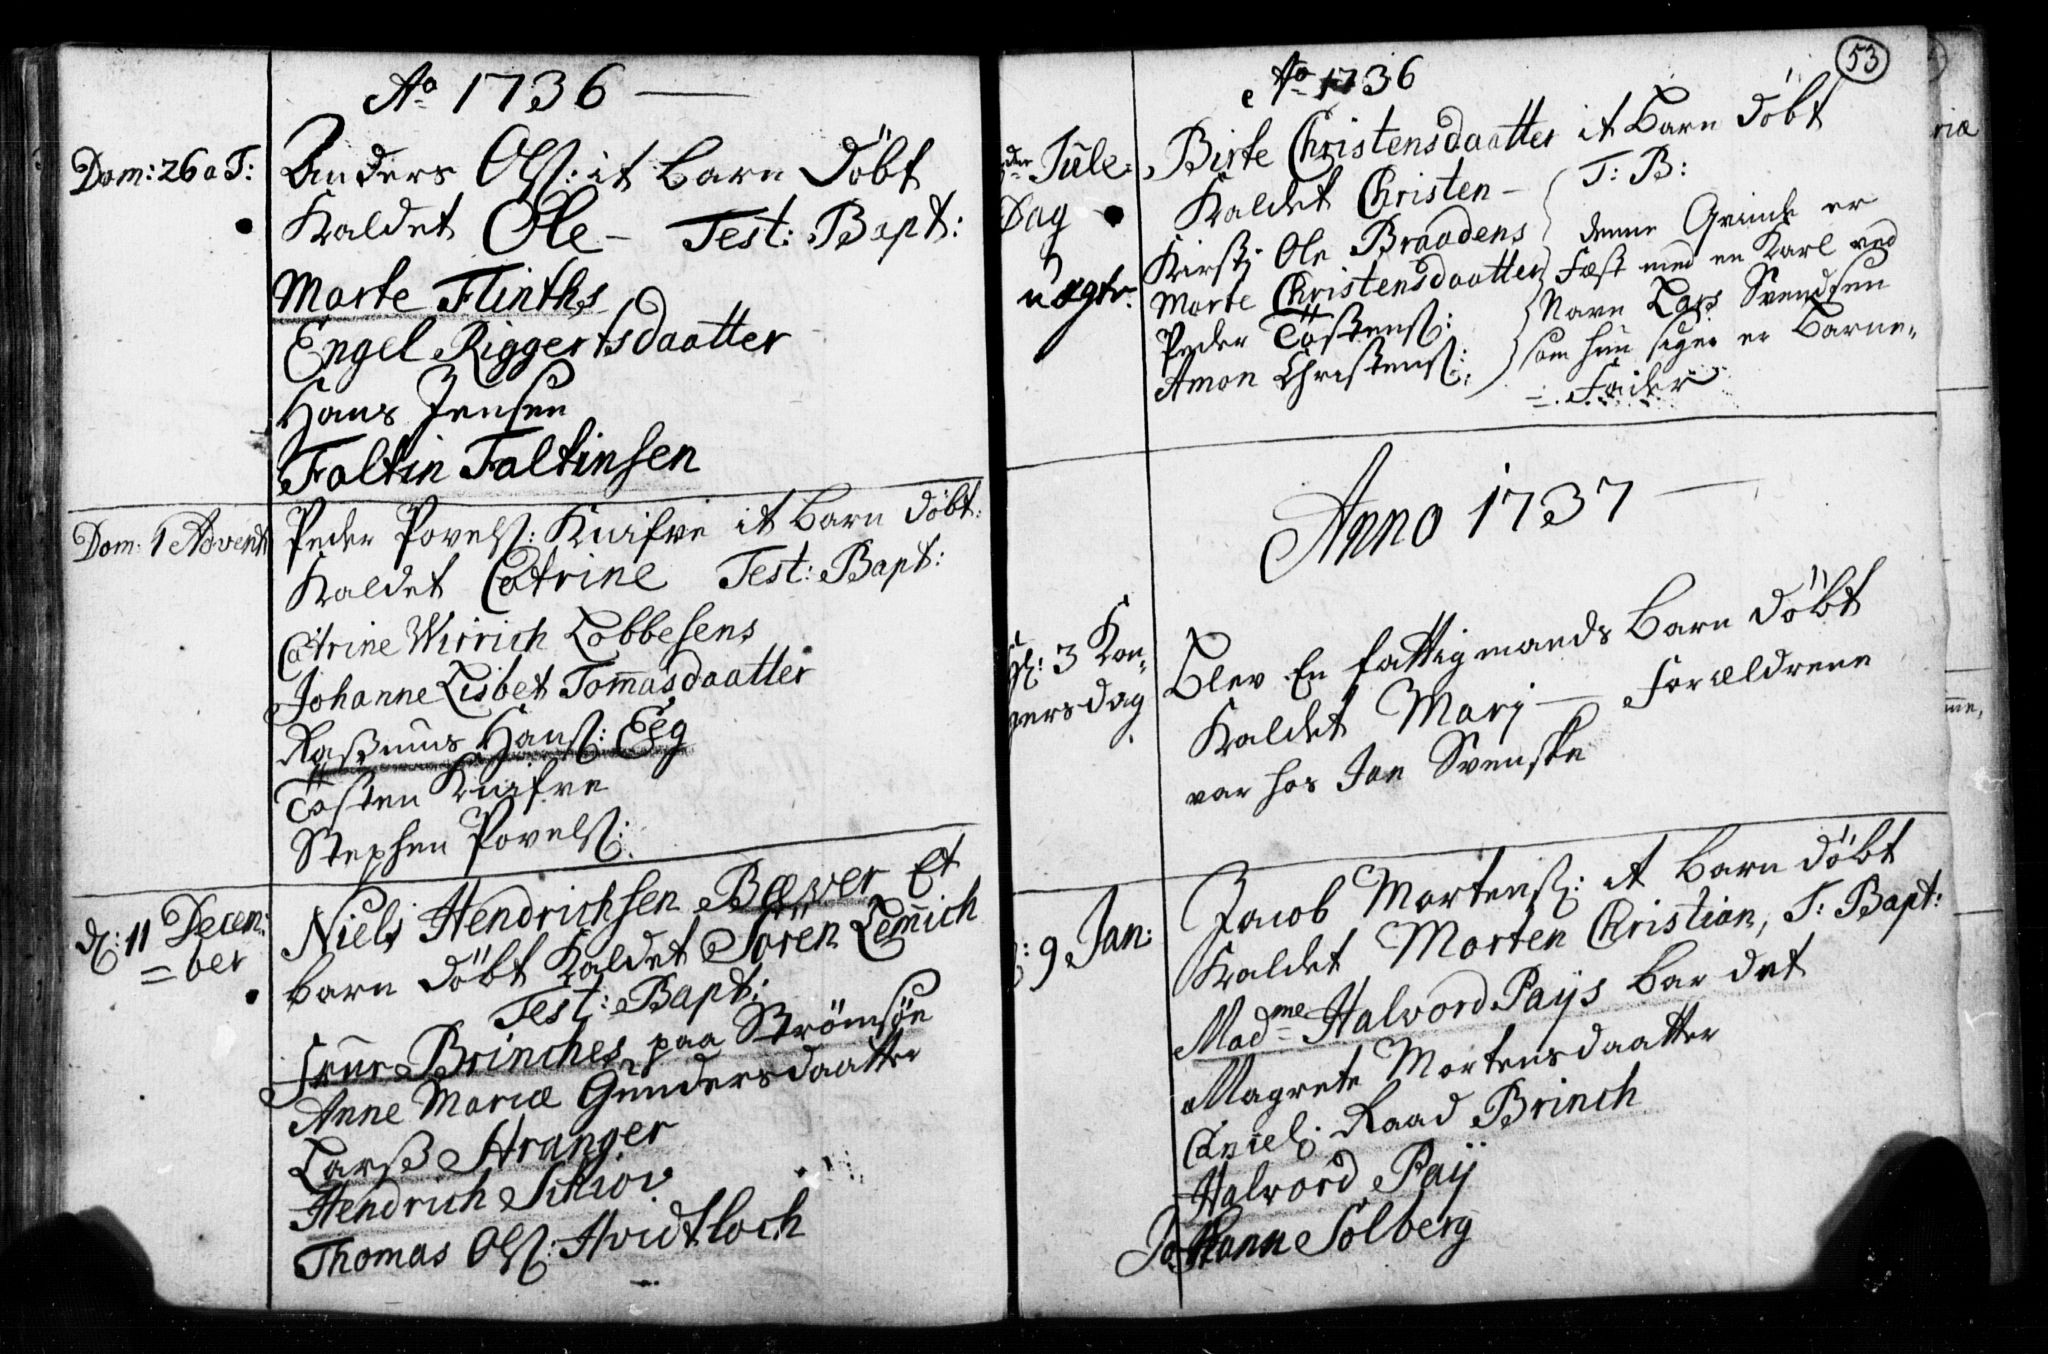 Ao 1736
Dom: 26 a T:
Anders Ols: it barn döbt
Kaldet Ole - Test: Bapt:
Marte Flinths
Engel Riggertsdaatter
Hans Jensen
Faltin Faltinsen
Dom: 1 Advent
Peder Povels: Knifve it barn döbt:
Kaldet Catrine Test: Bapt:
Catrine Wirrich Lobbesens
Johanne Lisbet Tommasdaatter
Rasmus Hans: Eeg
Tösten Knifve
Stephen Povels:
d: 11 Decem:
= ber
Niels Hendrichsen Bæwer Et
barn döbt Kaldet Sören Lemmich
Test: Bapt:
Frue Brinches paa Strömsöe
Anne Maria Gundersdaatter
Larss Hranger
Hendrich Schiov
Thomas Ols: Hvidtloch
53
Ao 1736
Jule:
Dag
uægte.
Birte Christensdaatter it Barn döbt
Kaldet Christen - T: B:
Kirsti Ole Braadens
Marte Christensdaatter
Peder Töstens:
Amon Christens:
denne Qvinde er
fæst med en Karl ved
Navn Lars Svendsen
som hun siger er Barne-
Fader
Anno 1737
3 Kon-
gersdag
Blev En fattig mands Barn döbt
Kaldet Mari - Forældrene
var hos Jan Svenske
9 Jan:
Jacob Mortens: it barn döbt
Kaldet Morten Christian, T: Bapt:
Madme Halvord Paÿs bar det
Magrete Mortensdaatter
Cansel: Raad Brinch
Halvord Paÿ
Johann Solberg